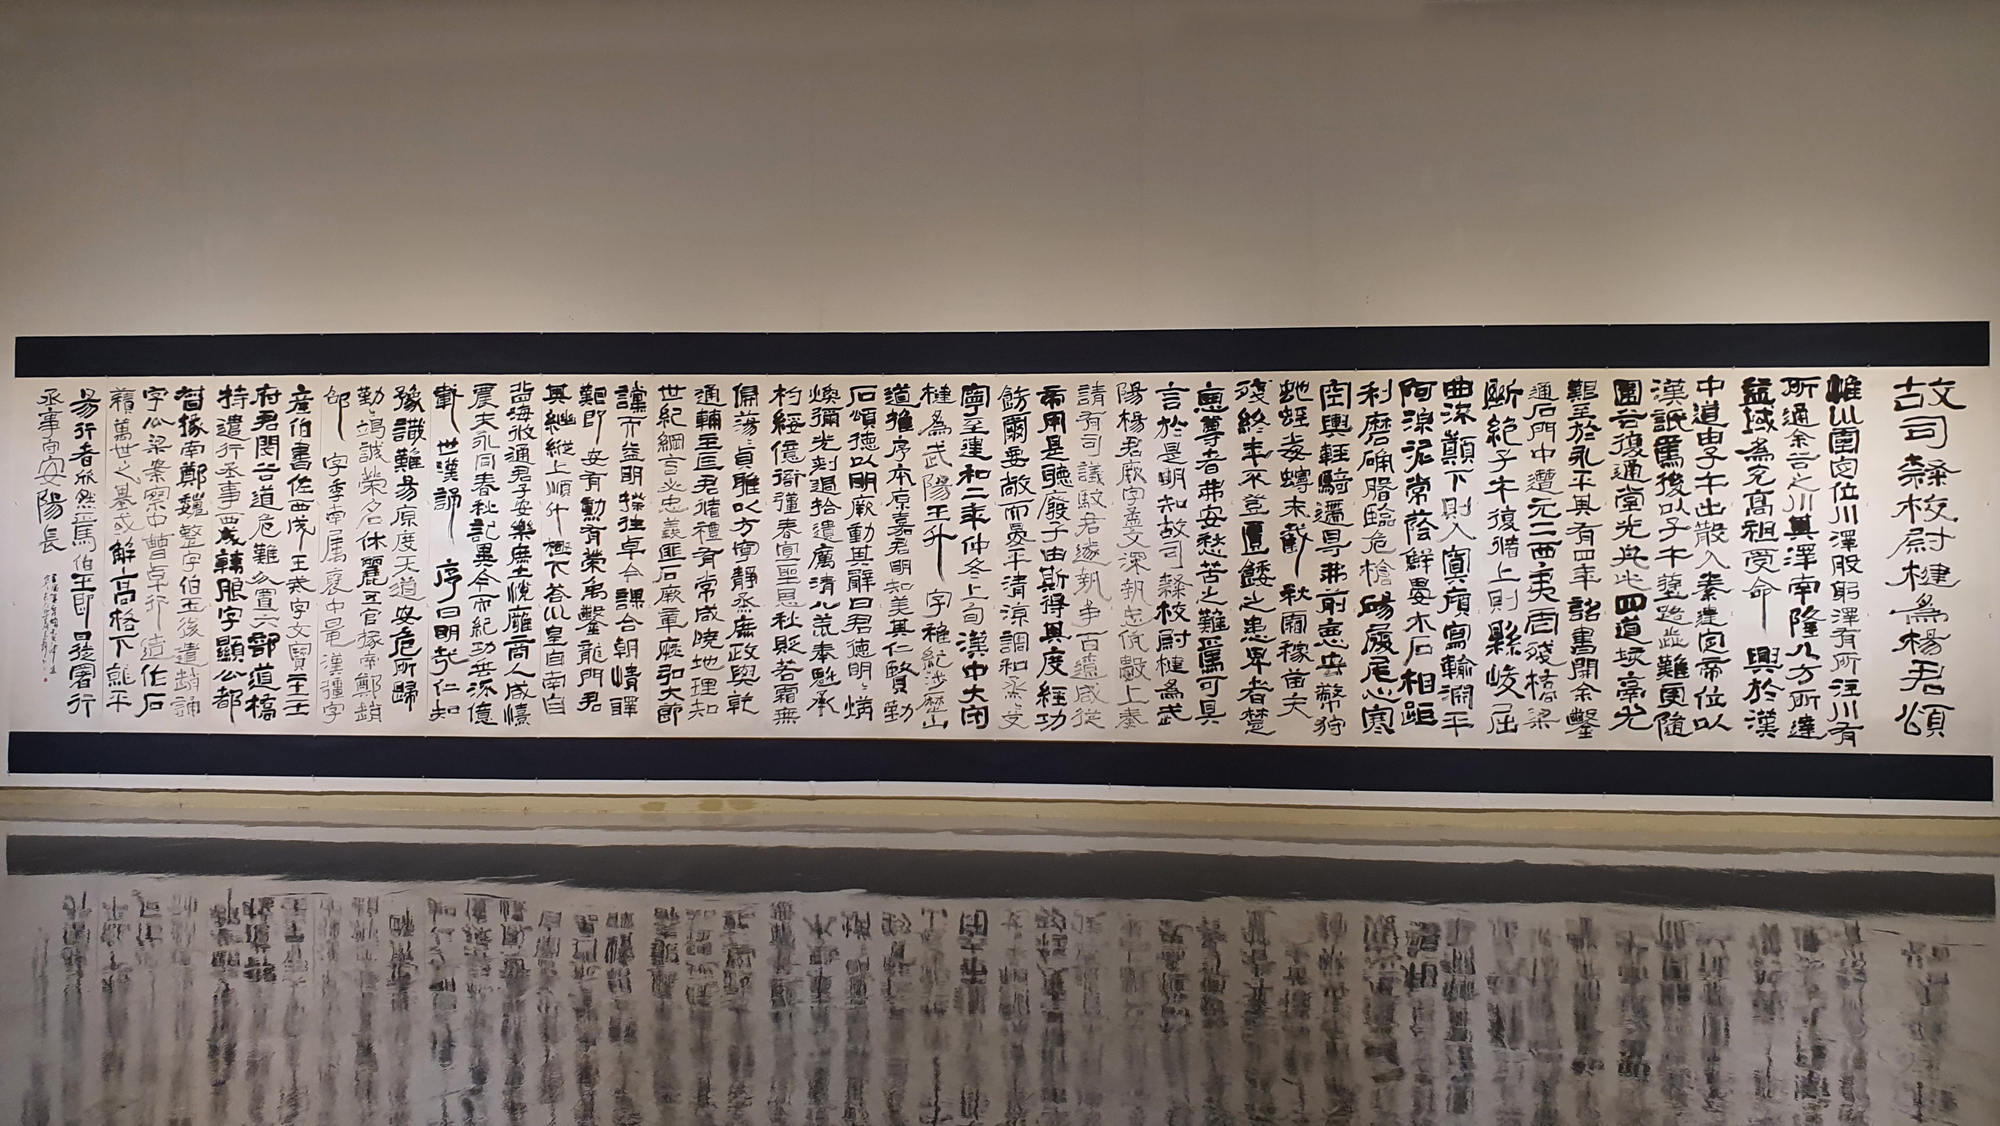 故司隸校尉楗為楊君頌
惟以靈定位川澤股躬澤有所注川有
所通余谷之川其澤南隆八方所達
益域為充高祖受命 興於漢
中道由子午出散入秦建定帝位以
漢詆焉後以子午塗路歰難更隨
圍谷復通堂光凡此四道垓鬲尤
艱至於永平其有四年詔書開余鑿
通石門中遭元二西夷虐殘橋梁
斷絕子午復循上則縣峻屈
曲流顛下則入冥廎寫輸淵平
阿涼泥常蔭鮮晏木石相距
利磨确磐臨危槍碭履尾心寒
空輿輕騎遰㝵弗前惡虫弊狩
虵蛭毒蟃未截 秋霜稼苗夭
殘終年不登匱餧之患卑者楚
惡尊者弗安愁苦之難焉可具
言於是明知故司隸校尉楗為武
陽楊君厥字孟文深執忠伉數上奏
請有司議駮君遂執爭百遼咸從
帝用是聽廢子由斯得其度經功
飭爾要敞而晏平清涼調和烝〻艾
寧至建和二年仲冬上旬漢中大守
楗為武陽王升 字稚紀涉歷山
道推序本原嘉君明知美其仁賢勒
石頌德以明厥勳其辭曰君德明〻炳
煥彌光刺過拾遺厲清八荒奉魁承
杓綏億衙彊春宣聖恩秋貶若霜無
偏蕩〻貞雅以方寧靜烝庶政與乾
通輔主匡君循禮有常咸曉地理知
世紀綱言必忠義匪石厥章恢弘大節
讜而益明揆往卓今謀合朝情醳
艱即安有勳有榮禹鑿龍門君
其繼縱上順斗極下荅坤皇自南自
北海攸通君子安樂庶士悅雍商人咸憘
農夫永同春秋記異今而紀功垂流億
載 世漢誦 序曰明哉仁知
豫識難易原度天道安危所歸
勤〻竭誠榮名休麗五官掾南鄭趙
邵 字季南屬褒中晁漢彊字
產伯書佐西成 王戒字文寶主王
府君閔谷道危難分置六部道橋
特遣行丞事西成韓朖字顯公都
督掾南鄭魏整字伯玉後遣趙誦
字公梁案察中曹卓行造作石
積萬世之基或解高格下就平
易行者欣然焉伯玉即日徙署行
丞事守安陽長